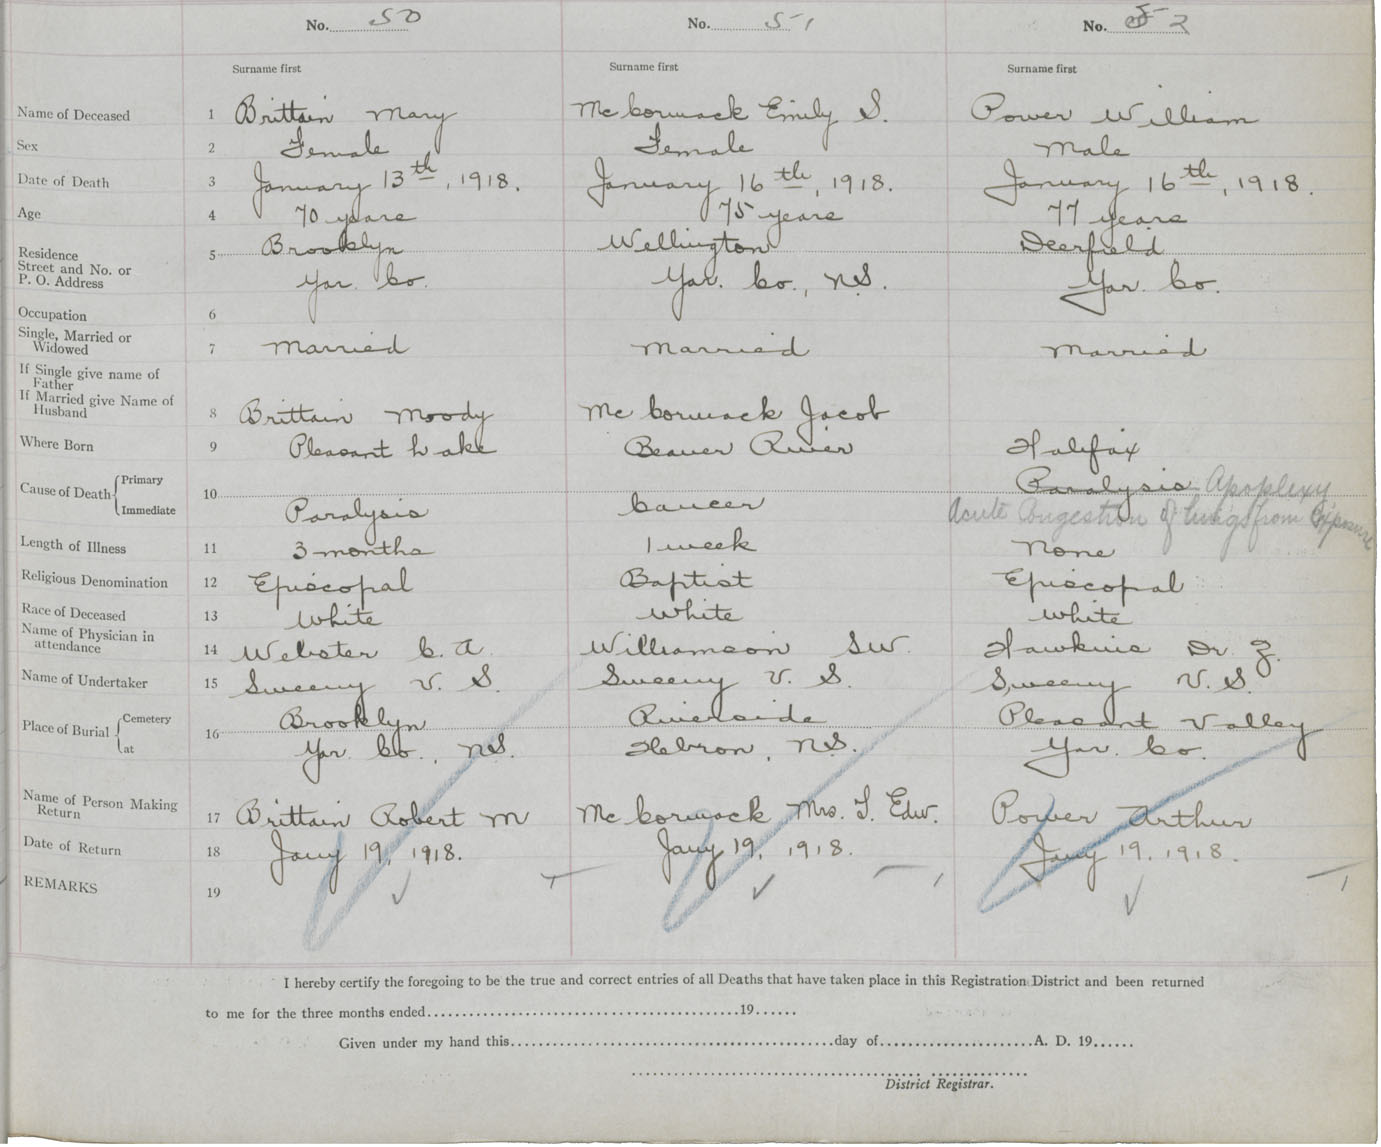 No. 50 No. 51 No. 52
Surname first Surname first Surname first
Name of Deceased 1 Brittain Mary McCormack Emily S. Power William
Sex 2 Female Female Male
Date of Death 3 January 13th, 1918. January 16th, 1918. January 16th, 1918.
Age 4 70 years 75 years 77 years
Residence 5 Brooklyn Wellington Deerfield
Street and No. or
P. O. Address Yar. Co. Yar. Co., N.S. Yar. Co.
Occupation 6
Single, Married or
Widowed 7 Married Married Married
If Single give name of
Father
If Married give Name of
Husband 8 Brittain Moody McCormack Jacob
Where Born 9 Pleasant Lake Beaver River Halifax
Cause of Death Primary 10 Paralysis Apoplexy
Immediate Paralysis Cancer Acute Congestion of lungs from Exposure
Length of Illness 11 3 months 1 week None
Religious Denomination 12 Episcopal Baptist Episcopal
Race of Deceased 13 White White White
Name of Physician in
attendance 14 Webster C. A. Williamson S.W. Hawkins Dr. Z.
Name of Undertaker 15 Sweeny V. S. Sweeny V. S. Sweeny V. S.
Place of Burial Cemetery 16 Brooklyn Riverside Pleasant Valley
at Yar. Co., N.S. Hebron, N.S. Yar. Co.
Name of Person Making
Return 17 Brittain Robert M McCormack Mrs. T. Edw. Power Arthur
Date of Return 18 Jany 19, 1918. Jany 19, 1918. Jany 19, 1918.
REMARKS 19
I hereby certify the foregoing to be the true and correct entries of all Deaths that have taken place in this Registration District and been returned
to me for the three months ended 19
Given under my hand this day of A. D. 19
District Registrar.